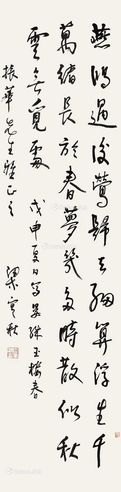 燕鴻過後鶯歸去細算浮生千
萬緒長於春夢幾多時散似秋
雲無覓處 戊申夏日寫晏殊玉樓春
振華先生雅正之 梁實秋